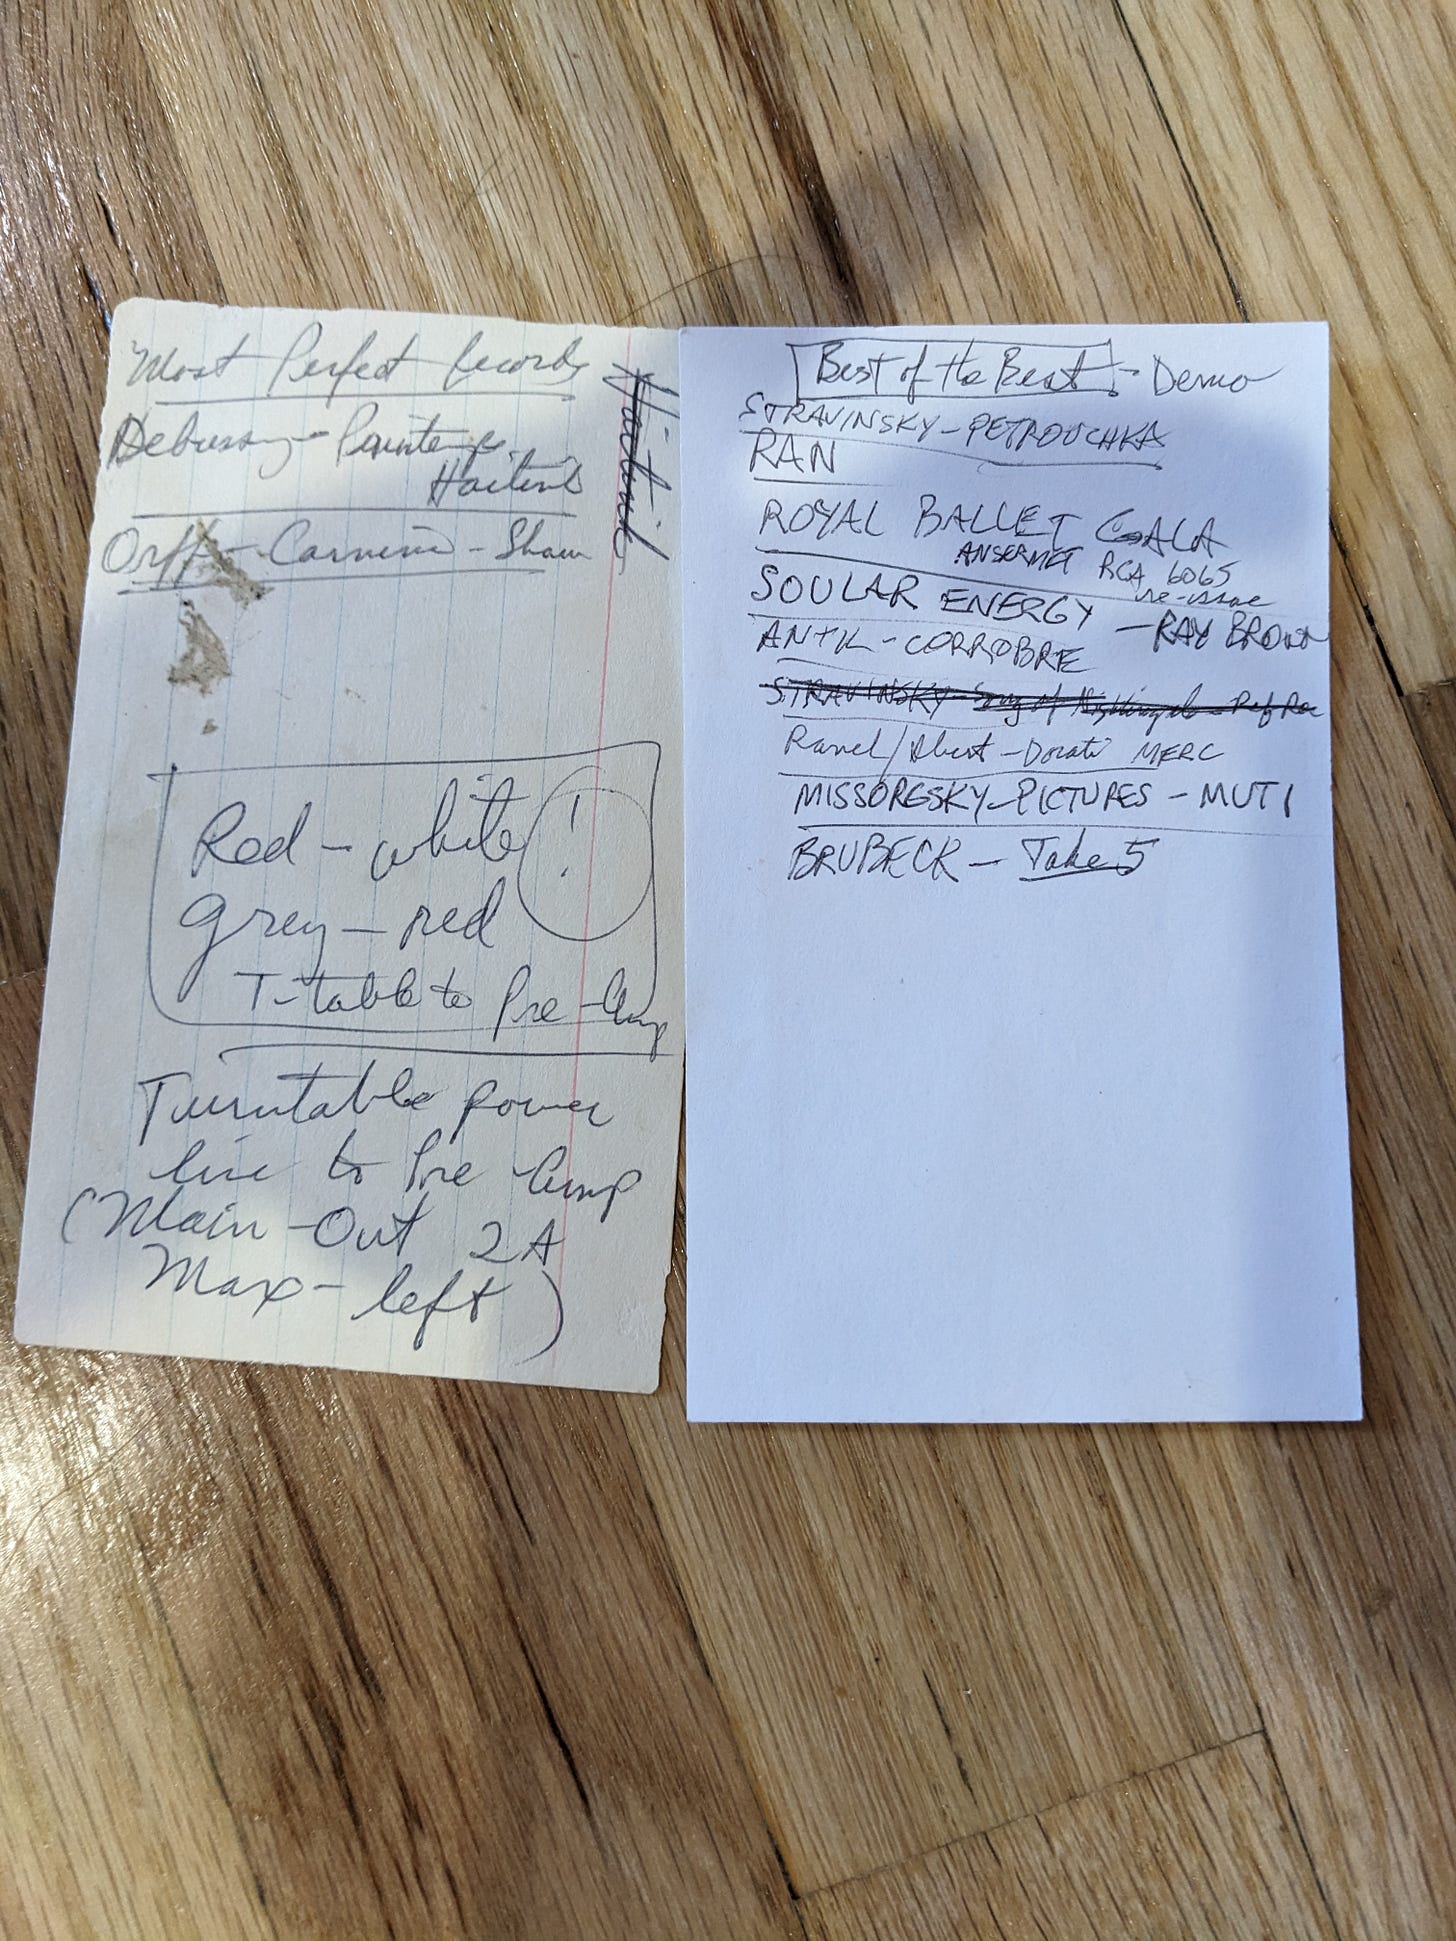 Most Perfect Records
Debussy - Printemps
Haitink
Haitink
Orff - Carmina - Shaw
Red - white !
grey - red
T-table to Pre-Amp
Turntable power
line to Pre Amp
(Main - Out 2A
Max - left)
Best of the Best - Demo
STRAVINSKY - PETROUCHKA
RAN
ROYAL BALLET GALA
ANSERMET RCA 6065
re-issue
SOULAR ENERGY - RAY BROWN
ANTIL - CORROBRE
STRAVINSKY - Song of Nightingale - Ref Rec
Ravel / - Dorati MERC
MISSORGSKY - PICTURES - MUTI
BRUBECK - Take 5